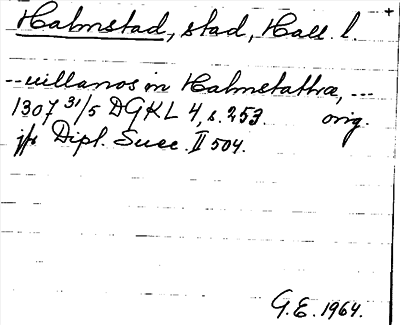 Halmstad, stad, Hall. l.
--- villanos in Halmstathræ, ---
1307 31/5 DGKL 4, s. 253. orig.
jfr Dipl. Suec. II 504.
G.E. 1964.